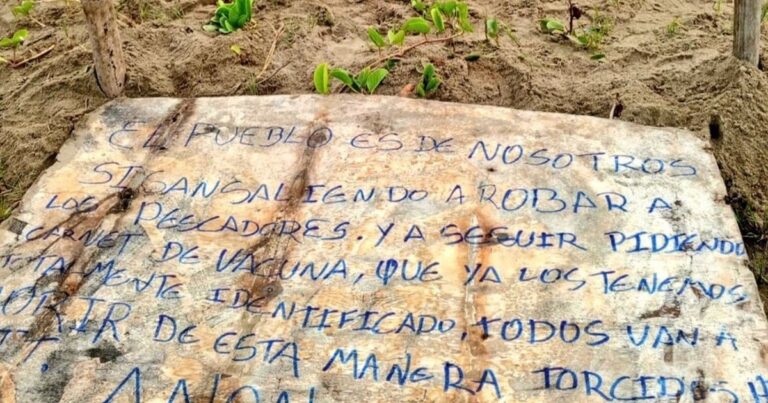 EL PUEBLO ES DE NOSOTROS
SIGANSALIENDO A ROBAR A
LOS PESCADORES. YA SEGUIR PIDIENDO
CARNET DE VACUNA, QUE YA LOS TENEMOS
TOTALMENTE IDENTIFICADO. TODOS VAN A
MORIR DE ESTA MANERA TORCIDOS H